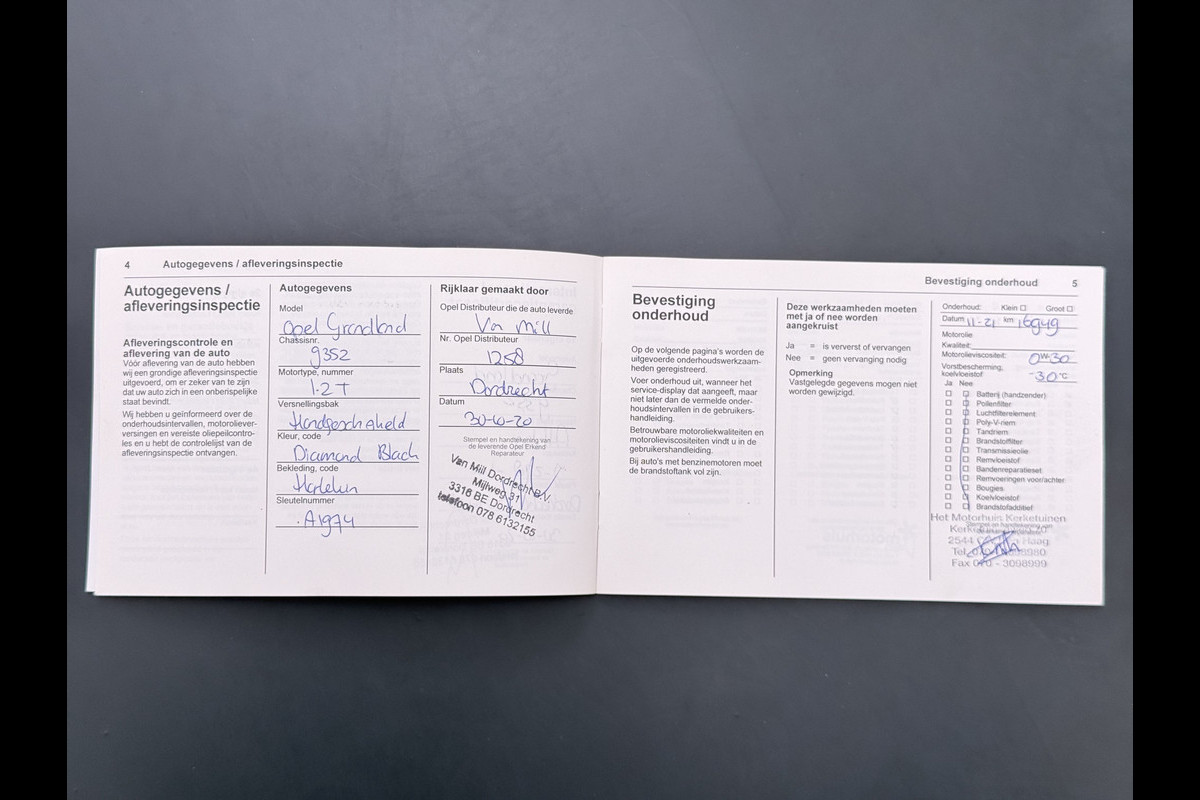 4 Autogegevens / afleveringsinspectie
Autogegevens /
afleveringsinspectie
Afleveringscontrole en
aflevering van de auto
Vóór aflevering van de auto hebben
wij een grondige afleveringsinspectie
uitgevoerd, om er zeker van te zijn
dat uw auto zich in een onberispelijke
staat bevindt.
Wij hebben u geïnformeerd over de
onderhoudsintervallen, motoroliever-
versingen en vereiste oliepeilcontro-
les en u hebt de controlelijst van de
afleveringsinspectie ontvangen.
Autogegevens
Model
Opel Grandland
Chassisnr.
9352
Motortype, nummer
1.2 T
Versnellingsbak
Handgeschakeld
Kleur, code
Diamond Black
Bekleding, code
Harlekin
Sleutelnummer
A1974
Rijklaar gemaakt door
Opel Distributeur die de auto leverde
Van Mill
Nr. Opel Distributeur
1258
Plaats
Dordrecht
Datum
30-10-20
Stempel en handtekening van
de leverende Opel Erkend
Reparateur
Van Mill Dordrecht B.V.
Mijlweg 31
3316 BE Dordrecht
telefoon 078 6132155
Bevestiging onderhoud 5
Bevestiging
onderhoud
Op de volgende pagina's worden de
uitgevoerde onderhoudswerkzaam-
heden geregistreerd.
Voer onderhoud uit, wanneer het
service-display dat aangeeft, maar
niet later dan de vermelde onder-
houdsintervallen in de gebruikers-
handleiding.
Betrouwbare motoroliekwaliteiten en
motorolieviscositeiten vindt u in de
gebruikershandleiding.
Bij auto's met benzinemotoren moet
de brandstoftank vol zijn.
Deze werkzaamheden moeten
met ja of nee worden
aangekruist
Ja = is ververst of vervangen
Nee = geen vervanging nodig
Opmerking
Vastgelegde gegevens mogen niet
worden gewijzigd.
Onderhoud: Klein Groot
Datum 11-21 km 16949
Motorolie
Kwaliteit:
Motorolieviscositeit: 0W-30
Vorstbescherming,
koelvloeistof -30°C
Ja Nee
Batterij (handzender)
Pollenfilter
Luchtfilterelement
Poly-V-riem
Tandriem
Brandstoffilter
Transmissieolie
Remvloeistof
Bandenreparatieset
Remvoeringen voor/achter
Bougies
Koelvloeistof
Brandstofadditief
Het Motorhuis Kerketuinen
2544 Haag
Tel. 070
Fax 070 - 3098999